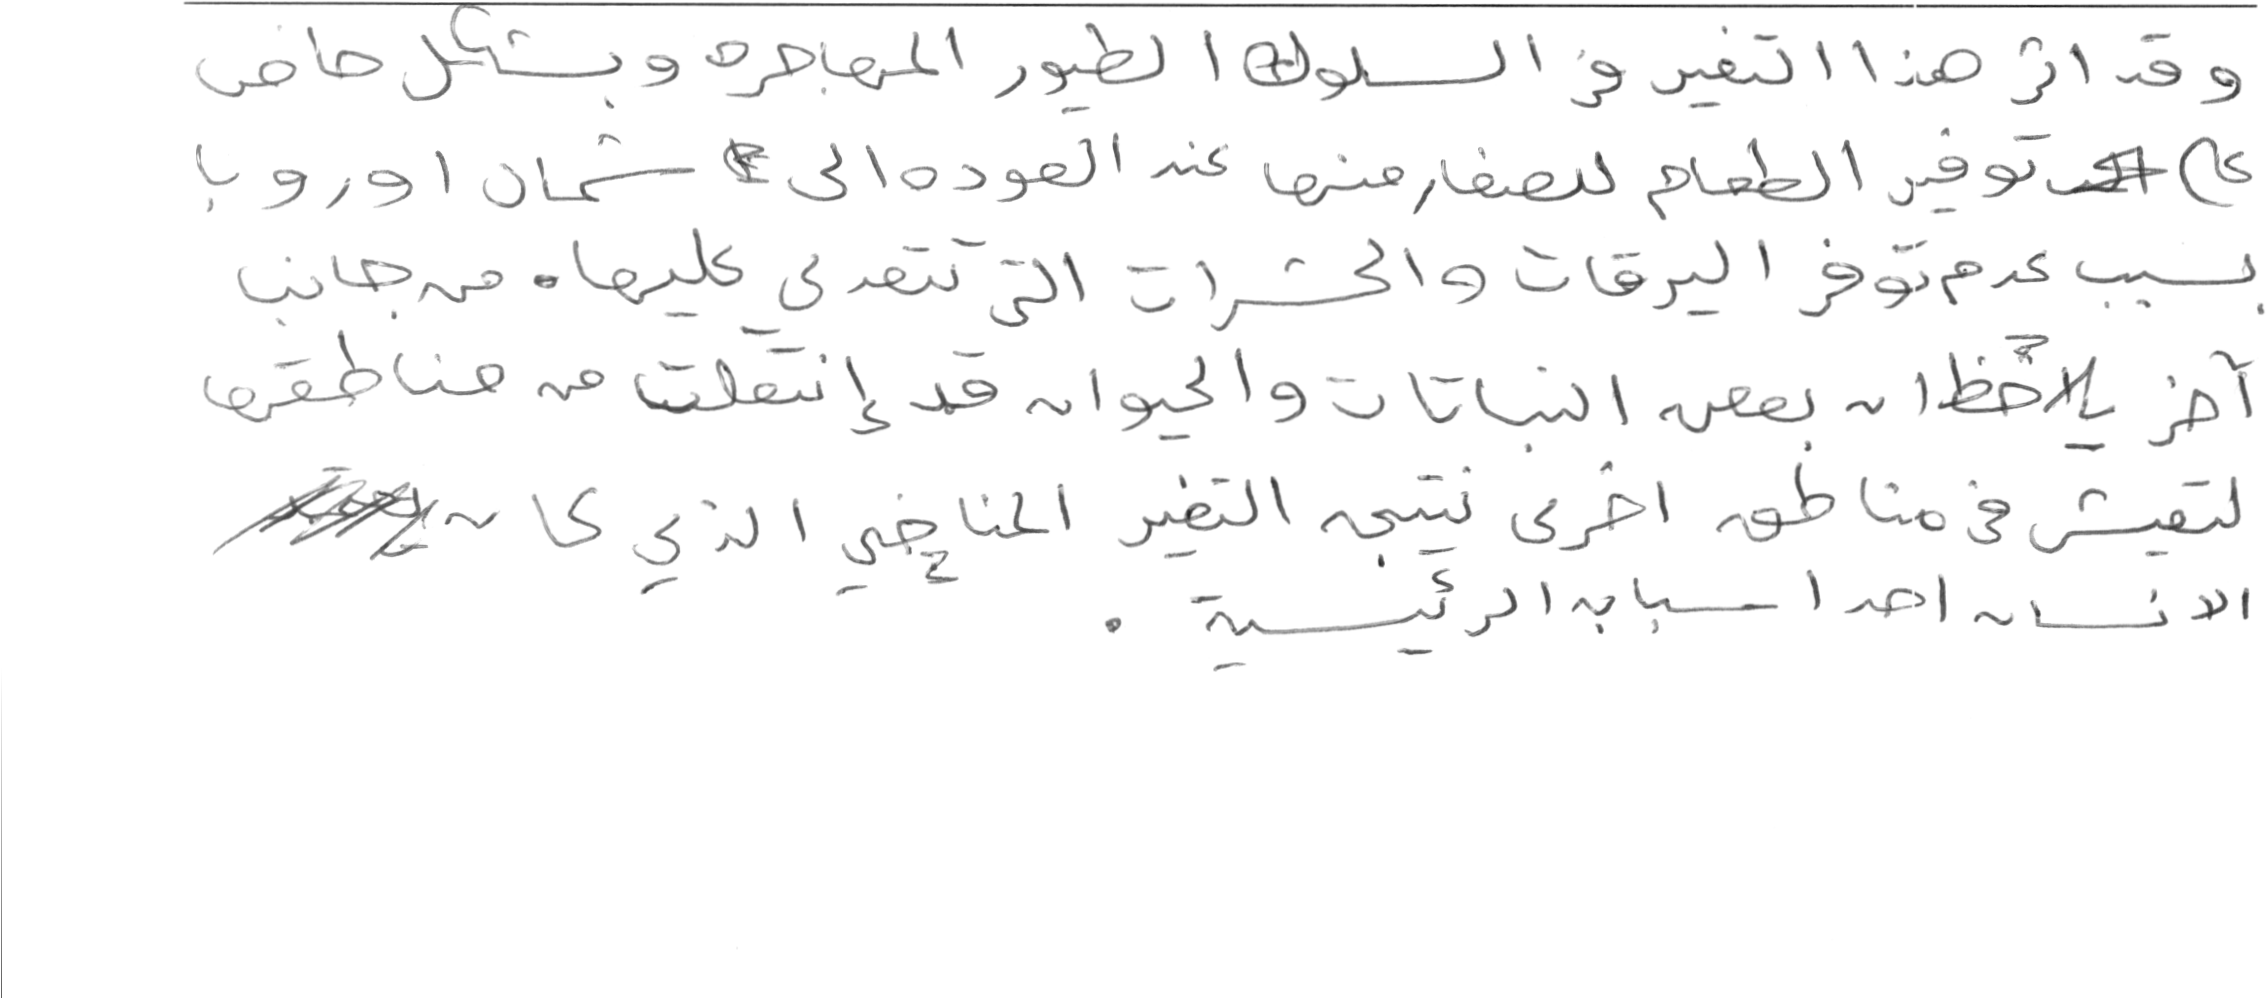 وقد اثر هذا التغير في السلوك الطيور المهاجره وبشكل خاص
على توفير الطعام للصغار منها عند العوده الى شمال اوروبا
بسبب عدم توفر اليرقات والحشرات التي تتغدى عليها. من جانب
آخر يلاحظ ان بعض النباتات والحيوان قد إنتقلت من مناطقها
لتعيش في مناطق اخرى نتيجه التغير المناخي الذي كان
الانسان احد اسبابه الرئيسية .